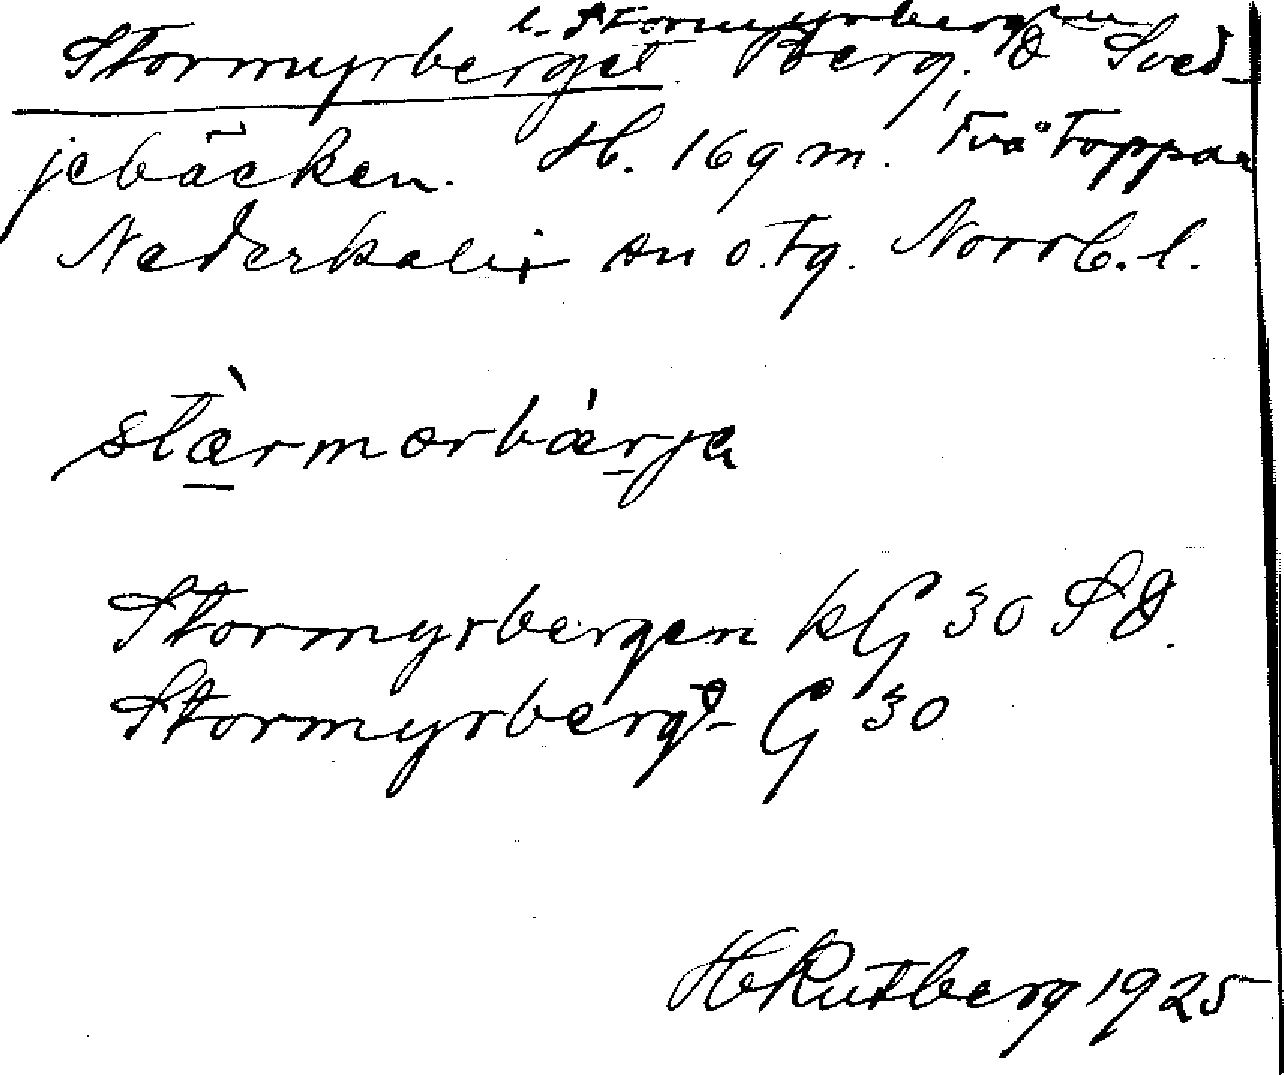 l. Stormyrbergen
Stormyrberget Berg, Ö Sved-
jebäcken. H. 169 m. Två toppar
Nederkalix sn o. tg. Norrb. l.
stærmorbàrja
Stormyrbergen kG 30 SÖ.
Stormyrberg- G 30
HRutberg 1925